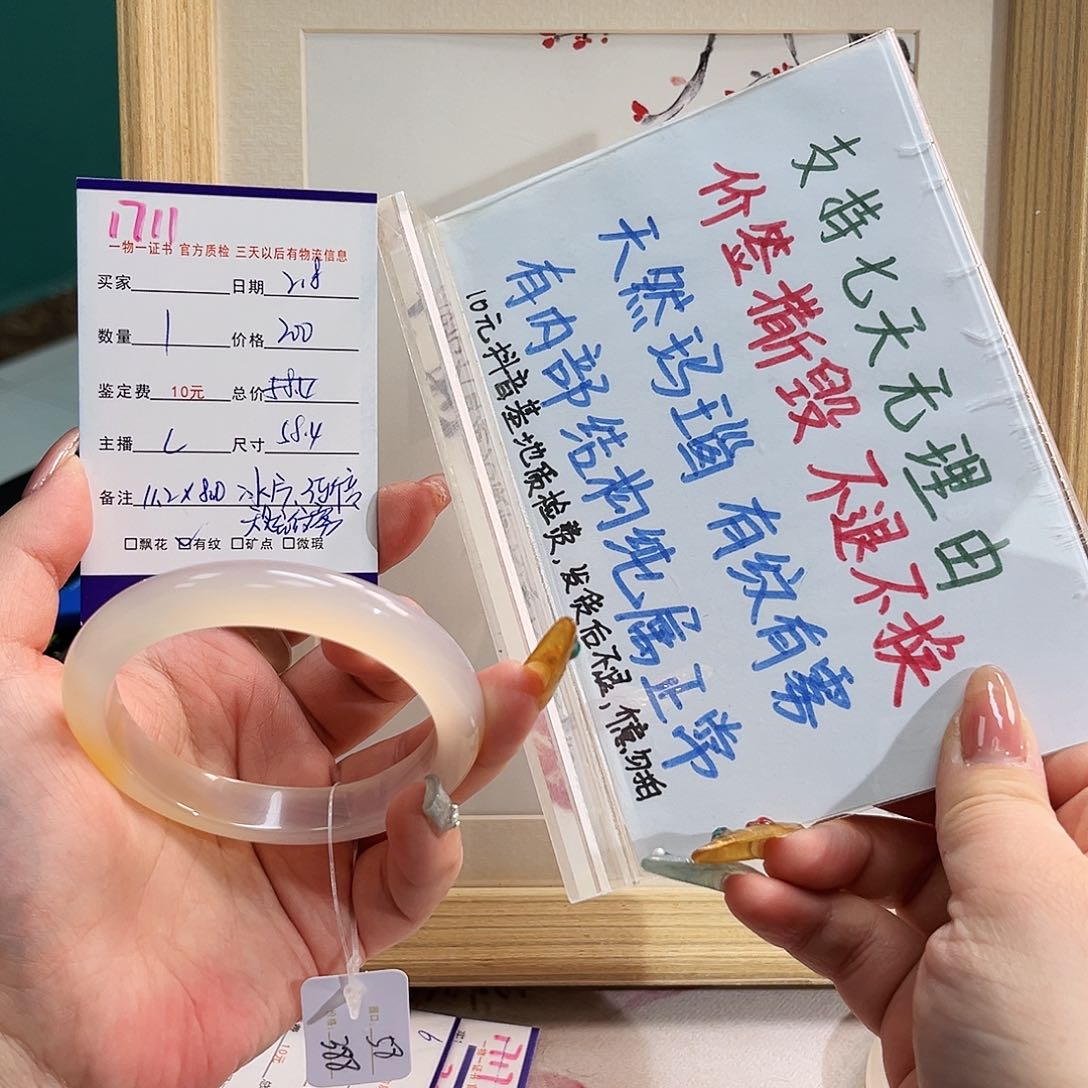 1711
一物一证书 官方质检 三天以后有物流信息
买家 日期 2.8
数量 1 价格 200
鉴定费 10元 总价
主播 L 尺寸 58.4
备注 11.2×8.0 冰片
□飘花 ☑有纹 □矿点 □微瑕
支持七天无理由
价签撕毁 不退不换
天然玛瑙 有纹有雾
有内部结构纯属正常
10元抖音基地质检费，发货后不退，慎勿拍
圈口 58
388
6
10元
1717